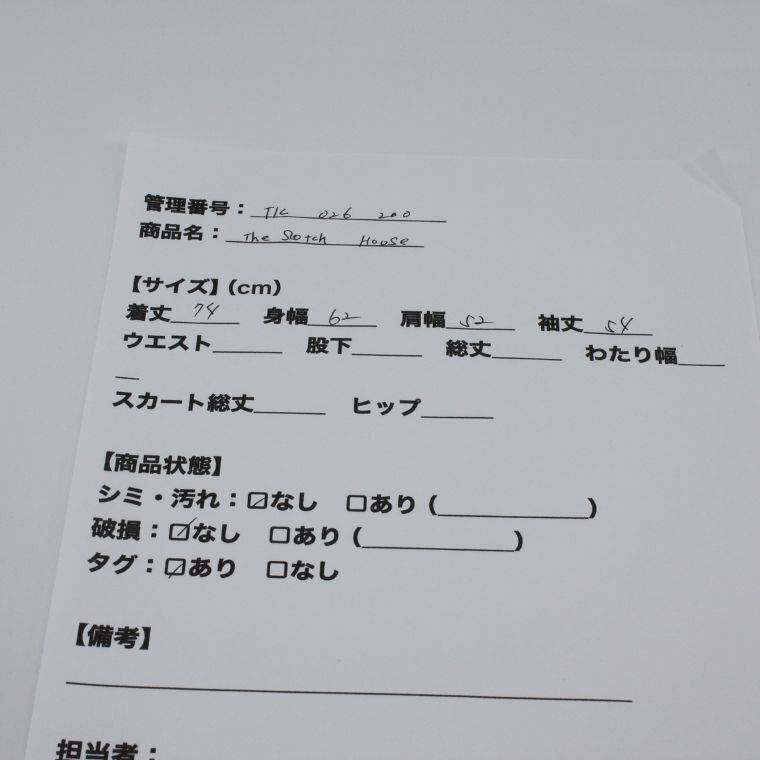 管理番号：TIC 026 200
商品名：The Scotch House
【サイズ】（cm）
着丈 74 身幅 62 肩幅 52 袖丈 54
ウエスト 股下 総丈 わたり幅
スカート総丈 ヒップ
【商品状態】
シミ・汚れ：☑なし □あり（ ）
破損：☑なし □あり（ ）
タグ：☑あり □なし
【備考】
担当者：